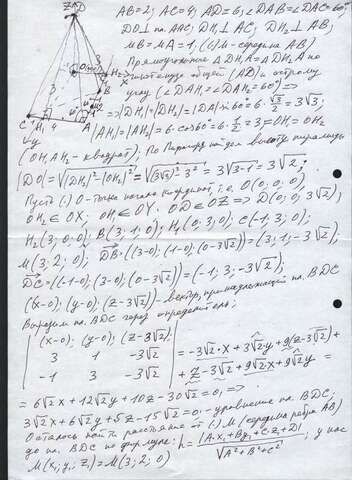 AB=2; AC=4; AD=6; ∠DAB=∠DAC=60°
DO⊥пл. ABC; DH₁⊥AC; DH₂⊥AB;
MB=MA=1; (·)M - середина AB)
Прямоугольные ΔDHA=ΔDH₂A по
гипотенузе общей (AD) и острому
углу (∠DAH=∠DAH₂=60°) ⇒
⇒|DH₁|=|DH₂|=|DA|·sin60°=6·√3/2=3√3;
|AH₁|=|AH₂|=6·cos60°=6·1/2=3=OH=OH₂
(OH₁AH₂ - квадрат); По Пифагору найдем высоту пирамиды
|DO|=√(|DH₂|²-|OH₂|²)=√((3√3)²-3²)=3√(3-1)=3√2;
Пусть (·)O - точка начала координат, т.е. O(0; 0; 0),
OH₂∈OX; OH∈OY. OD∈OZ ⇒ D(0; 0; 3√2),
H₂(3; 0; 0); B(3; 1; 0); H₁(0; 3; 0); C(-1; 3; 0);
M(3; 2; 0); DB=((3-0); (1-0); (0-3√2))=(3; 1; -3√2),
DC=((-1-0); (3-0); (0-3√2))=(-1; 3; -3√2),
(x-0); (y-0); (z-3√2) - вектор, принадлежащий пл. BDC
Выразим пл. BDC через определитель:
|(x-0); (y-0); (z-3√2)|
|3 1 -3√2| = -3√2·x+3√2y+9(z-3√2)+
|-1 3 -3√2| +z-3√2+9√2·x+9√2y=
=6√2x+12√2y+10z-30√2=0; ⇒
3√2x+6√2y+5z-15√2=0, - уравнение пл. BDC;
Осталось найти расстояние от (·)M (середина ребра AB)
до пл. BDC по формуле: h=|A·x₁+By₁+C·z₁+D|/√(A²+B²+C²), у нас
M(x₁; y₁; z₁)=M(3; 2; 0)